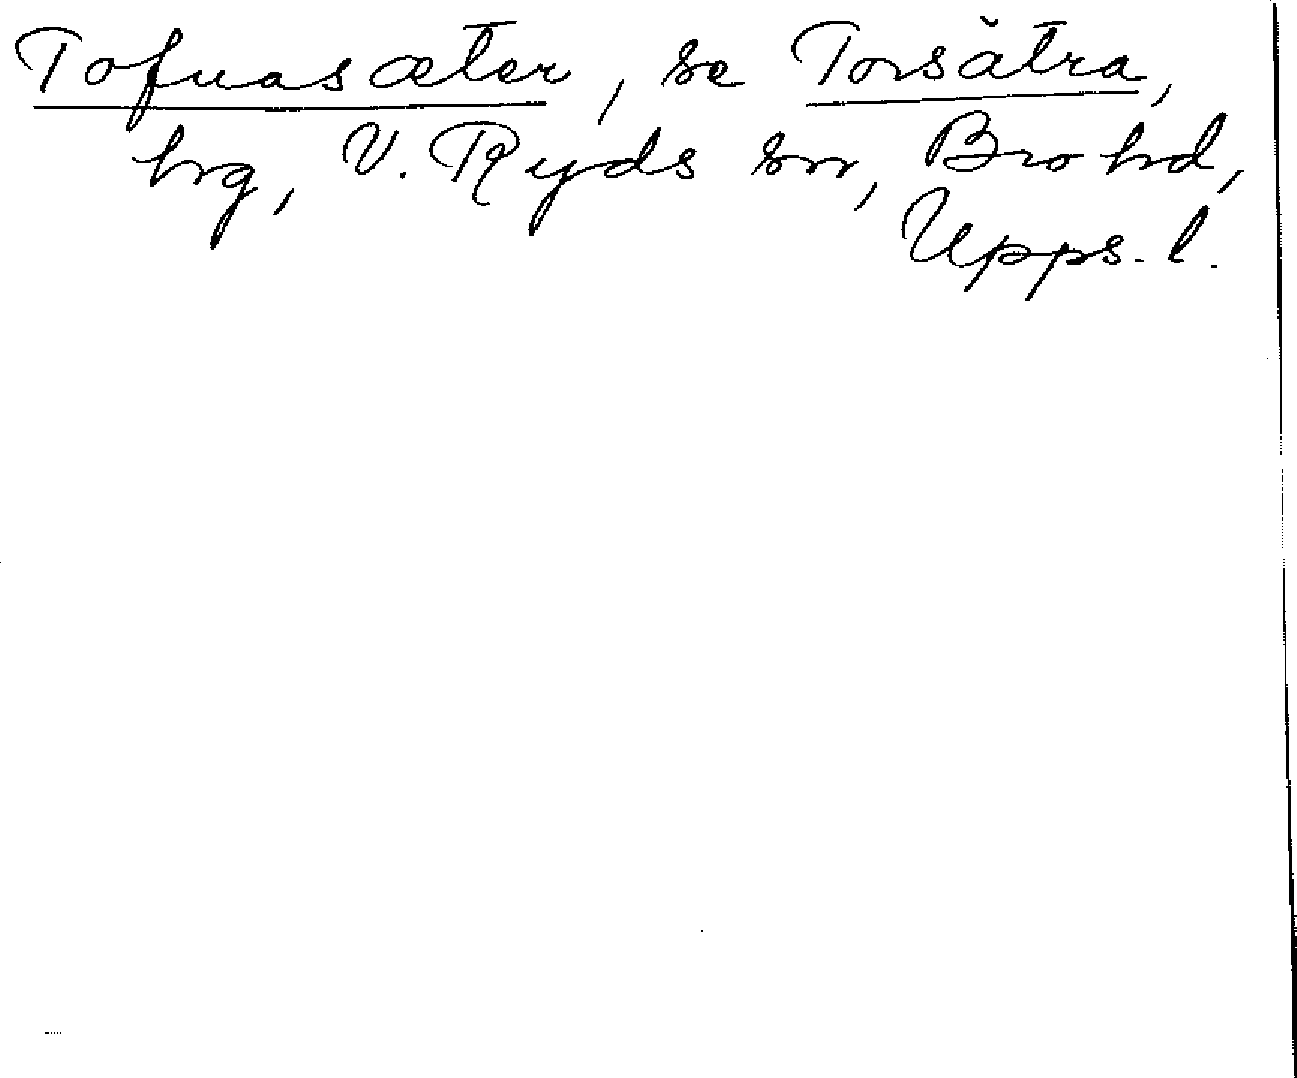 Tofuasæter, se Torsätra,
hrg, V. Ryds sn, Bro hd,
Upps. l.